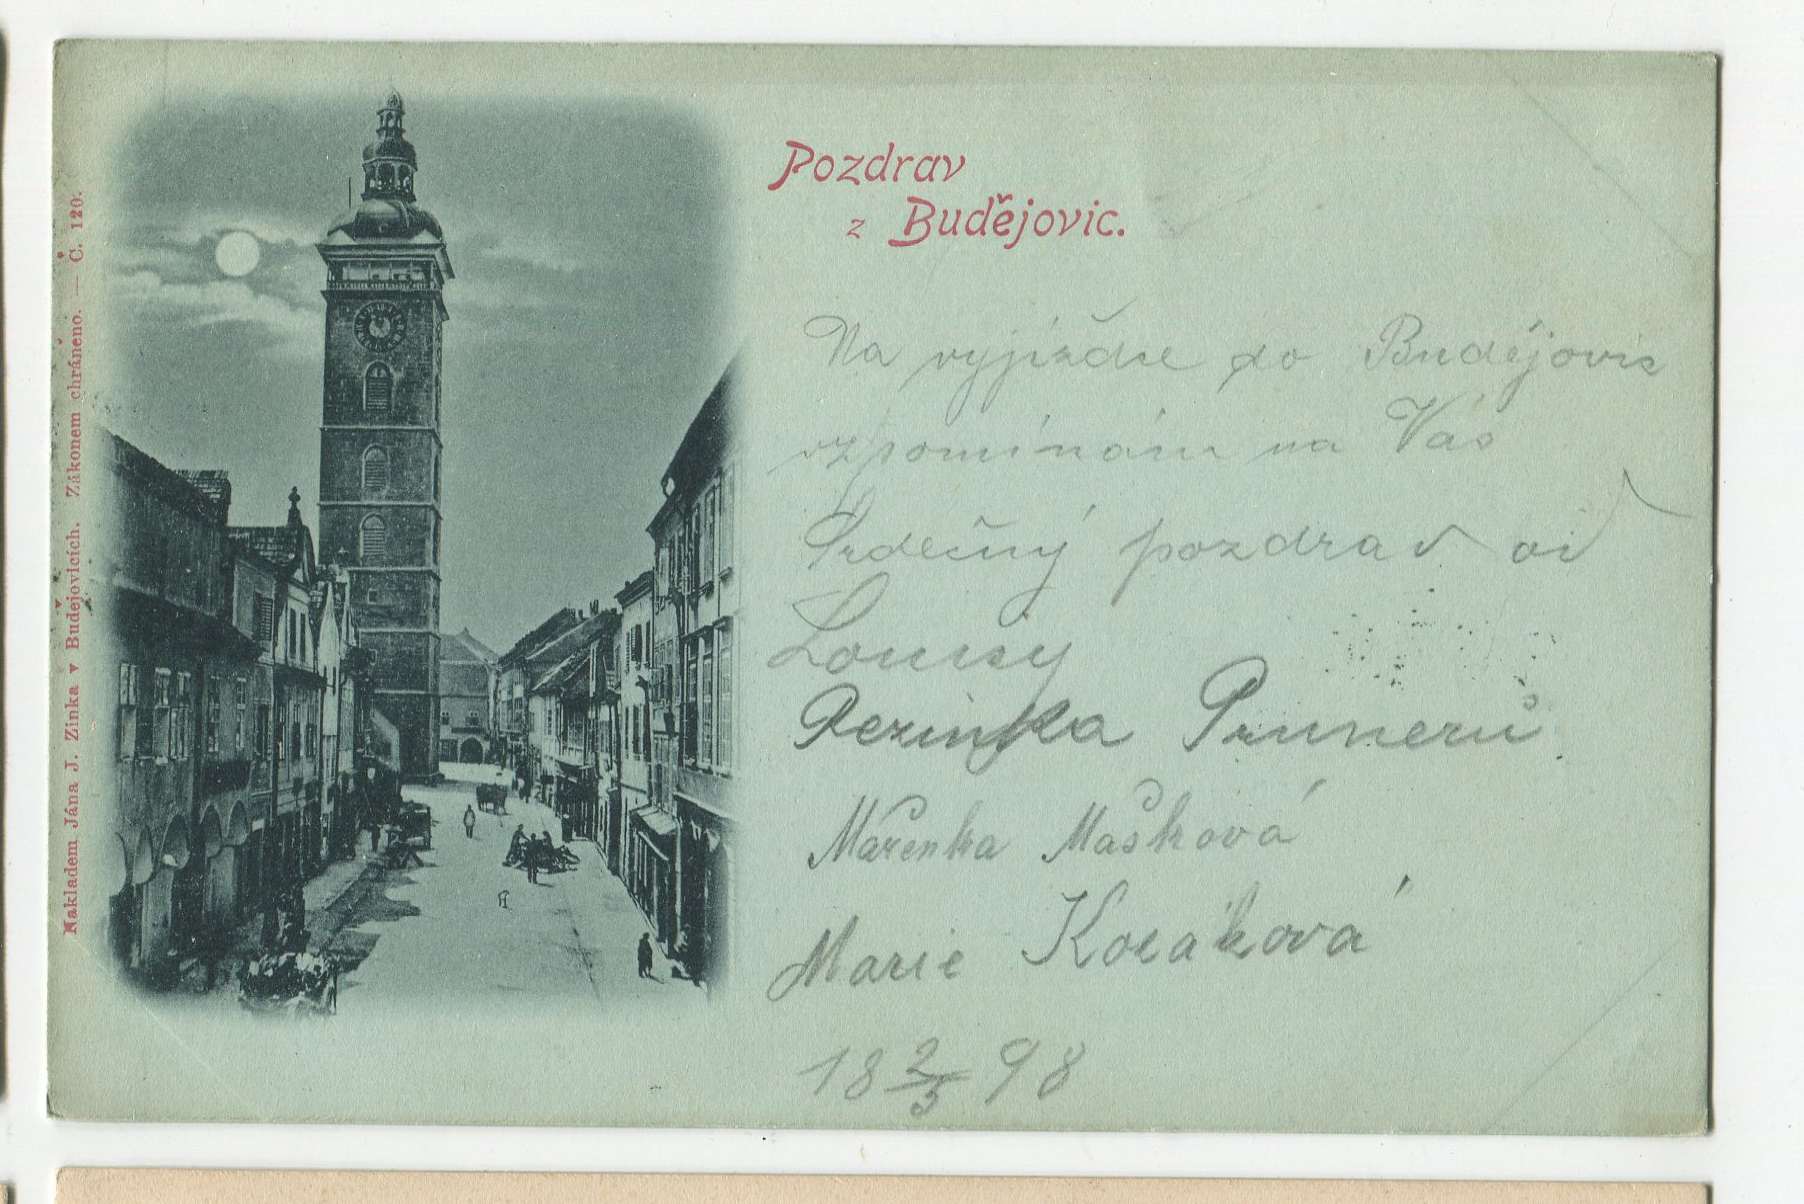 Pozdrav
z Budějovic.
Na vyjížďce do Budějovic
vzpomínám na Vás
Srdečný pozdrav od
Louisy
Pezinka
Mařenka Mašková
Marie
18 2/5 98
Nákladem Jána J. Zinka v Budějovicích. Zákonem chráněno. — Č. 120.